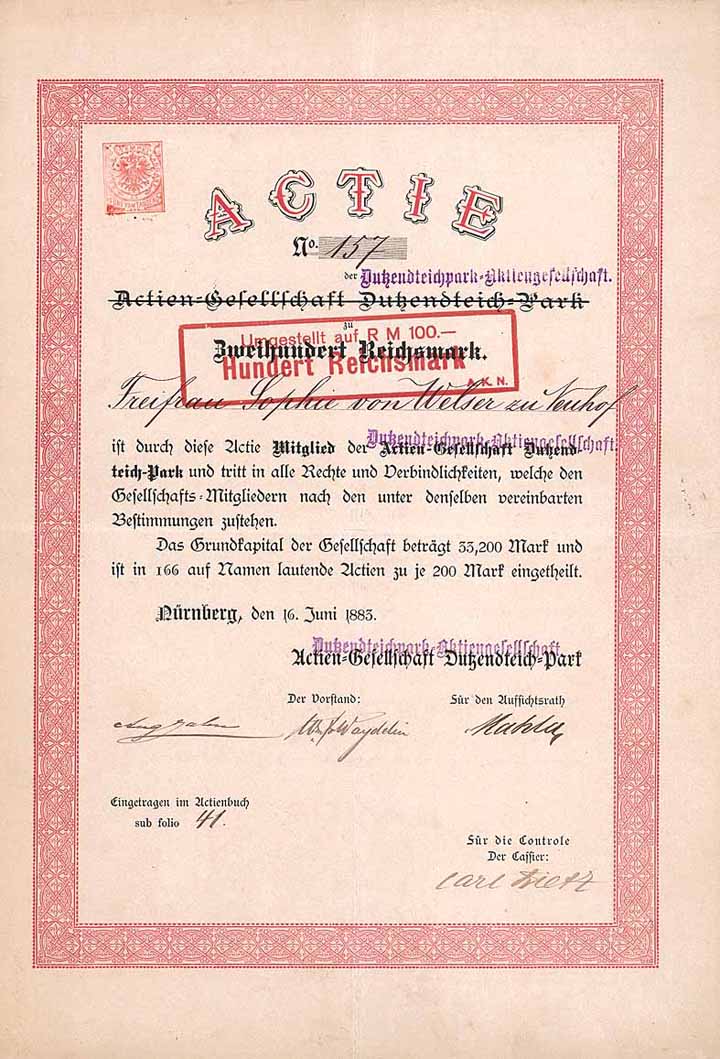 ACTIE
No. 157
der Dutzendteichpark-Aktiengesellschaft.
Actien-Gesellschaft Dutzendteich-Park
zu
Umgestellt auf R M 100.—
Zweihundert Reichsmark.
Hundert Reichsmark
A.K.N.
Freifrau Sophie von Welser zu Neuhof
Dutzendteichpark-Aktiengesellschaft.
ist durch diese Actie Mitglied der Actien-Gesellschaft Dutzend-
teich-Park und tritt in alle Rechte und Verbindlichkeiten, welche den
Gesellschafts-Mitgliedern nach den unter denselben vereinbarten
Bestimmungen zustehen.
Das Grundkapital der Gesellschaft beträgt 33,200 Mark und
ist in 166 auf Namen lautende Actien zu je 200 Mark eingetheilt.
Nürnberg, den 16. Juni 1883.
Dutzendteichpark-Aktiengesellschaft
Actien-Gesellschaft Dutzendteich-Park
Der Vorstand: Für den Aufsichtsrath
Eingetragen im Actienbuch
sub folio 41.
Für die Controle
Der Cassier:
Carl Dietz